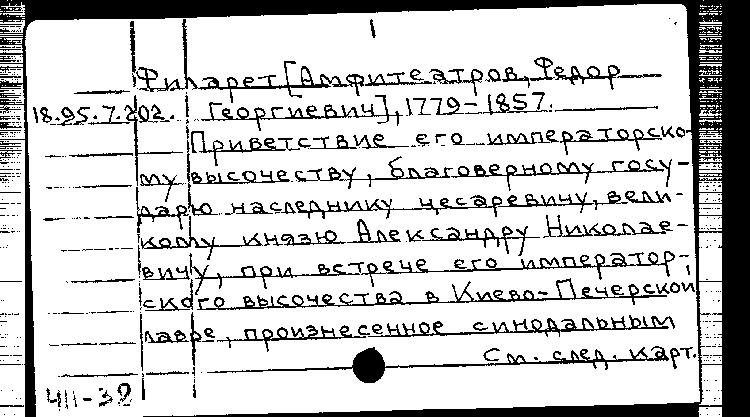 1
Филарет [Амфитеатров, Федор
18.95.7.202. Георгиевич], 1779-1857.
Приветствие его императорско-
му высочеству, благоверному госу-
дарю наследнику цесаревичу, вели-
кому князю Александру Николае-
вичу, при встрече его император-
ского высочества в Киево-Печерской
лавре, произнесенное синодальным
См. след. карт.
411-32